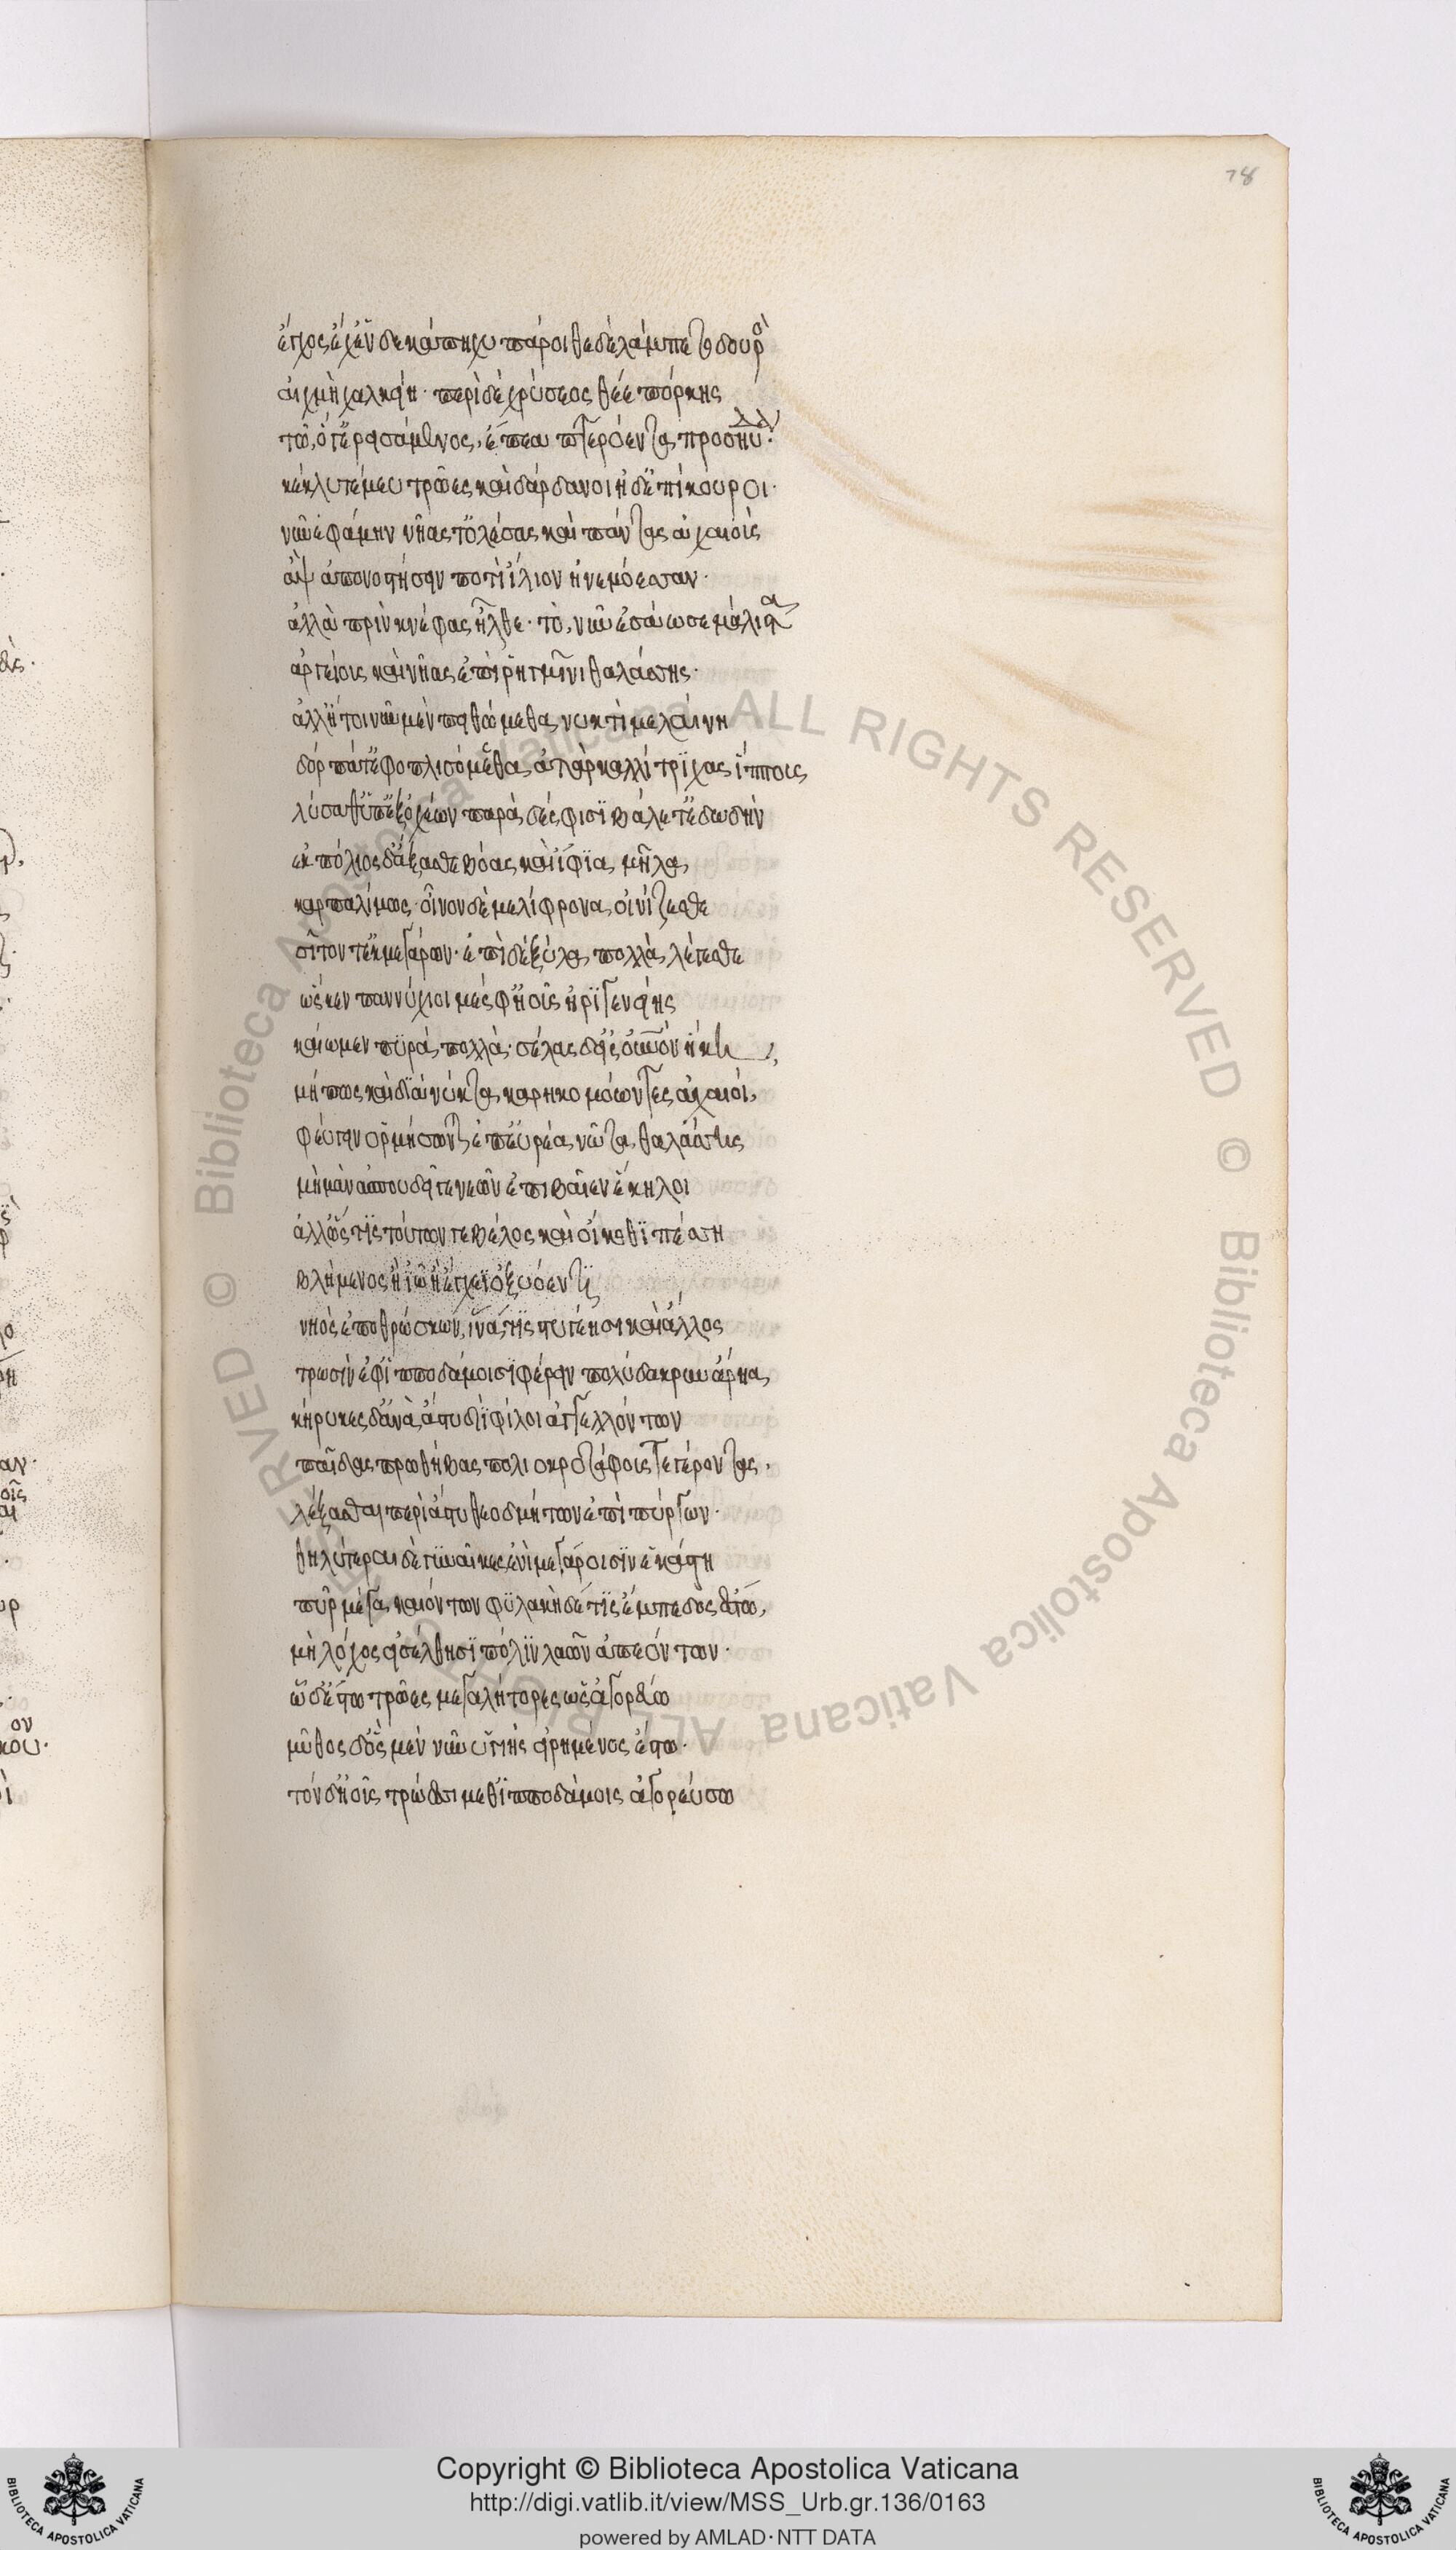 78
ἔγχος ἔχ' ἑνδεκάπηχυ· πάροιθε δὲ λάμπετο δουρὸς
αἰχμὴ χαλκείη· περὶ δὲ χρύσεος θέε πόρκης
τῶ, ὅγ' ἐρεισάμενος, ἔπεα πτερόεντα προσηύδα·
κέκλυτέ μευ τρῶες καὶ δάρδανοι ἠδ' ἐπίκουροι·
νῦν ἐφάμην νῆας τ' ὀλέσας καὶ πάντας ἀχαιοὺς
ἂψ ἀπονοστήσειν ποτὶ ἴλιον ἠνεμόεσσαν·
ἀλλὰ πρὶν κνέφας ἦλθε· τὸ, νῦν ἐσάωσε μάλιστα
ἀργείους καὶ νῆας ἐπὶ ῥηγμῖνι θαλάσσης·
ἀλλ' ἤτοι νῦν μὲν πειθώμεθα νυκτὶ μελαίνη
δόρπά τ' ἐφοπλισόμεσθα, ἀτὰρ καλλίτριχας ἵππους
λύσαθ' ὑπ' ἐξ ὀχέων παρὰ δέ σφισι βάλετ' ἐδωδήν
ἐκ πόλιος δ' ἄξασθε βόας καὶ ἴφια μῆλα
καρπαλίμως· οἶνον δὲ μελίφρονα οἰνίζεσθε
σῖτον τ' ἐκ μεγάρων· ἐπὶ δὲ ξύλα πολλὰ λέγεσθε
ὥς κεν παννύχιοι μέσφ' ἠοῦς ἠριγενείης
καίωμεν πυρὰ πολλὰ· σέλας δ' εἰς οὐρανὸν ἥκῃ,
μή πως καὶ διὰ νύκτα καρηκομόωντες ἀχαιοί,
φεύγειν ὁρμήσωντ' ἐπ' εὐρέα νῶτα θαλάσσης
μὴ μὰν ἀσπουδεί γε νεῶν ἐπιβαῖεν ἕκηλοι
ἀλλ' ὥς τις τούτων γε βέλος καὶ οἴκοθι πέσση
βλήμενος ἢ ἰῶ ἢ ἔγχεϊ ὀξυόεντι
νηὸς ἐπιθρώσκων, ἵνα τις στυγέησι καὶ ἄλλος
τρωσὶν ἐφ' ἱπποδάμοισι φέρειν πολύδακρυν ἄρηα,
κήρυκες δ' ἀνὰ ἄστυ διῒ φίλοι ἀγγελλόντων
παῖδας πρωθήβας πολιοκροτάφους τε γέροντας,
λέξασθαι περὶ ἄστυ θεοδμήτων ἐπὶ πύργων·
θηλύτεραι δὲ γυναῖκες ἐνὶ μεγάροισιν ἑκάστη
πῦρ μέγα καιόντων φυλακὴ δέ τις ἔμπεδος ἔστω,
μὴ λόχος εἰσέλθησι πόλιν λαῶν ἀπεόντων·
ὧδ' ἔστω τρῶες μεγαλήτορες ὡς ἀγορεύω
μῦθος δ' ὃς μὲν νῦν ὑγιὴς εἰρημένος ἔστω·
τὸν δ' ἠοῦς τρώεσσι μεθ' ἱπποδάμοις ἀγορεύσω
Copyright © Biblioteca Apostolica Vaticana
http://digi.vatlib.it/view/MSS_Urb.gr.136/0163
powered by AMLAD·NTT DATA